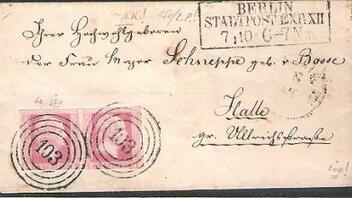 BERLIN
STADTPOST EXP. XII
7|10 6-7 N
Ihrer Hochwohlgeboren
der Frau Major Schneppe geb. v. Bosse
Halle
gr. Ullrichsstraße
103
103